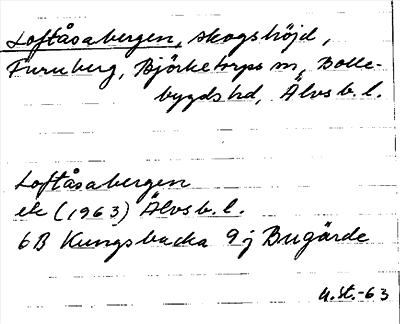 Loftåsabergen, skogshöjd,
Furuberg, Björketorps sn, Bolle-
bygds hd, Älvsb. l.
Loftåsabergen
ek (1963) Älvsb. l.
6B Kungsbacka 9j Bugärde
u.st.-63